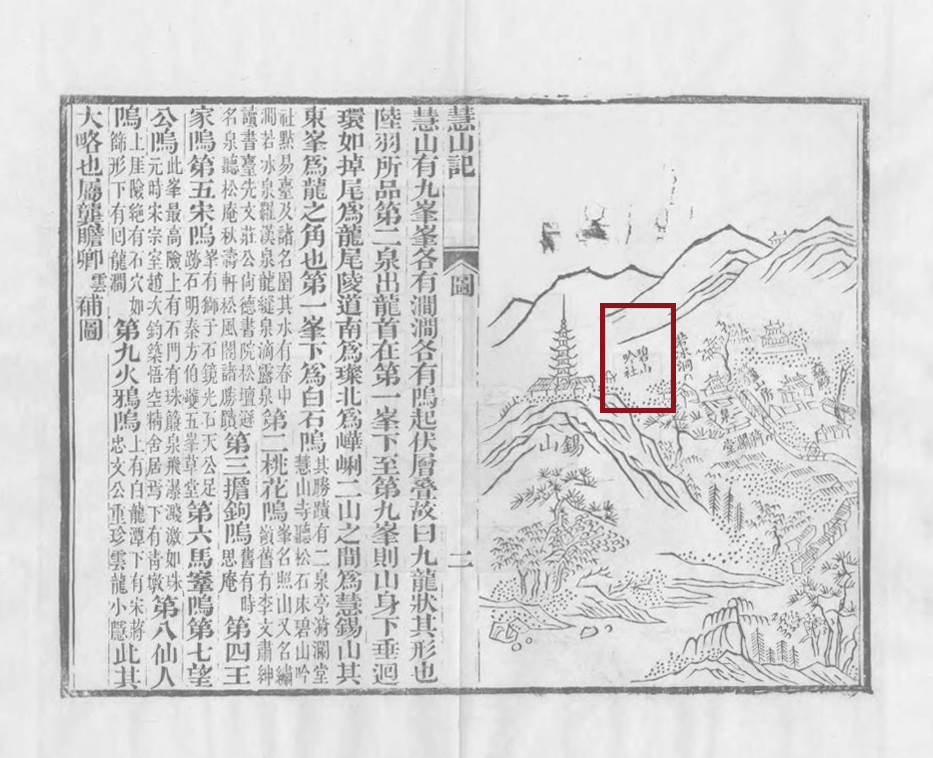 碧山
吟社
若冰洞
錫山
漪瀾堂
慧山記
圖
二
慧山有九峯峯各有澗澗各有隖起伏層疊故曰九龍狀其形也
陸羽所品第二泉出龍首在第一峯下至第九峯則山身下垂迴
環如掉尾爲龍尾陵道南爲璨北爲二山之間爲慧錫山其
東峯爲龍之角也第一峯下爲白石隖其勝蹟有二泉亭漪瀾堂慧山寺聽松石床碧山吟
社點易臺及諸名園其水有春申澗若冰泉羅漢泉龍縫泉滴露泉第二桃花隖峯名照山又名繡嶺舊有李文肅紳
讀書臺先文莊公尚德書院松壇名泉聽松庵秋濤軒松風閣諸勝蹟第三擔鉤隖舊有時思庵第四王
家隖第五宋隖峯有獅子石鏡光石天公足跡石明秦方伯夔五峯草堂第六馬鞍隖第七望
公隖此峯最高險上有石門有珠簾泉飛瀑濺激如珠元時宋宗室趙次鈞築悟空精舍居焉下有靑墩第八仙人
隖上厓險絕有石穴如篩形下有回龍澗第九火鴉隖上有白龍潭下有宋蔣忠文公重珍雲龍小隱此其
大略也屬龔瞻卿雲補圖